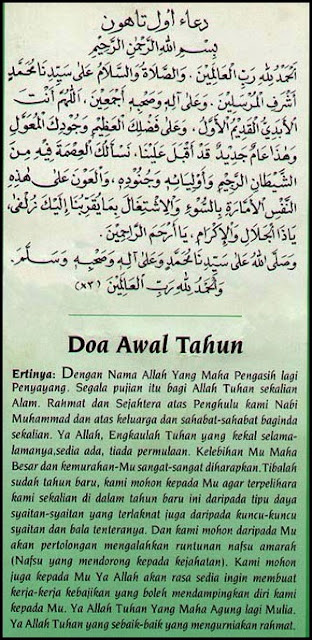 دعاء اول تاهون
بِسْمِ اللهِ الرَّحْمٰنِ الرَّحِيْمِ
اَلْحَمْدُ لِلّٰهِ رَبِّ الْعَالَمِيْنَ. وَالصَّلَاةُ وَالسَّلَامُ عَلٰى سَيِّدِنَا مُحَمَّدٍ
أَشْرَفِ الْمُرْسَلِيْنَ. وَعَلٰى آلِهِ وَصَحْبِهِ أَجْمَعِيْنَ. اَللّٰهُمَّ أَنْتَ
الْأَبَدِيُّ الْقَدِيْمُ الْأَوَّلُ. وَعَلٰى فَضْلِكَ الْعَظِيْمِ وَجُوْدِكَ الْمُعَوَّلُ
وَهٰذَا عَامٌ جَدِيْدٌ قَدْ أَقْبَلَ عَلَيْنَا، نَسْأَلُكَ الْعِصْمَةَ فِيْهِ مِنَ
الشَّيْطَانِ الرَّجِيْمِ وَأَوْلِيَائِهِ وَجُنُوْدِهِ. وَالْعَوْنَ عَلٰى هٰذِهِ
النَّفْسِ الْأَمَّارَةِ بِالسُّوْءِ وَالْاِشْتِغَالَ بِمَا يُقَرِّبُنَا إِلَيْكَ زُلْفٰى،
يَاذَا الْجَلَالِ وَالْإِكْرَامِ. يَا أَرْحَمَ الرَّاحِمِيْنَ.
وَصَلَّى اللهُ عَلٰى سَيِّدِنَا مُحَمَّدٍ وَعَلٰى آلِهِ وَصَحْبِهِ وَسَلَّمَ.
وَالْحَمْدُ لِلّٰهِ رَبِّ الْعَالَمِيْنَ (×٣)
Doa Awal Tahun
Ertinya: Dengan Nama Allah Yang Maha Pengasih lagi
Penyayang. Segala pujian itu bagi Allah Tuhan sekalian
Alam. Rahmat dan Sejahtera atas Penghulu kami Nabi
Muhammad dan atas keluarga dan sahabat-sahabat baginda
sekalian. Ya Allah, Engkaulah Tuhan yang kekal selama-
lamanya,sedia ada, tiada permulaan. Kelebihan Mu Maha
Besar dan kemurahan-Mu sangat-sangat diharapkan.Tibalah
sudah tahun baru, kami mohon kepada Mu agar terpelihara
kami sekalian di dalam tahun baru ini daripada tipu daya
syaitan-syaitan yang terlaknat juga daripada kuncu-kuncu
syaitan dan bala tenteranya. Dan kami mohon daripada Mu
akan pertolongan mengalahkan runtunan nafsu amarah
(Nafsu yang mendorong kepada kejahatan). Kami mohon
juga kepada Mu Ya Allah akan rasa sedia ingin membuat
kerja-kerja kebajikan yang boleh mendampingkan diri kami
kepada Mu. Ya Allah Tuhan Yang Maha Agung lagi Mulia.
Ya Allah Tuhan yang sebaik-baik yang mengurniakan rahmat.